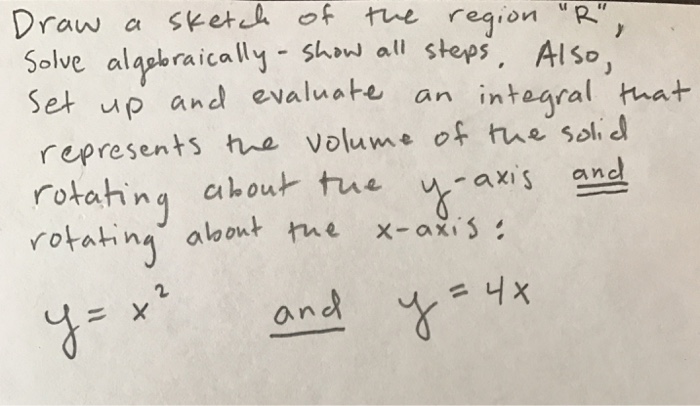 Draw a sketch of the region "R",
Solve algebraically - show all steps. Also,
Set up and evaluate an integral that
represents the volume of the solid
rotating about the y-axis and
rotating about the x-axis:
y = x² and y = 4x